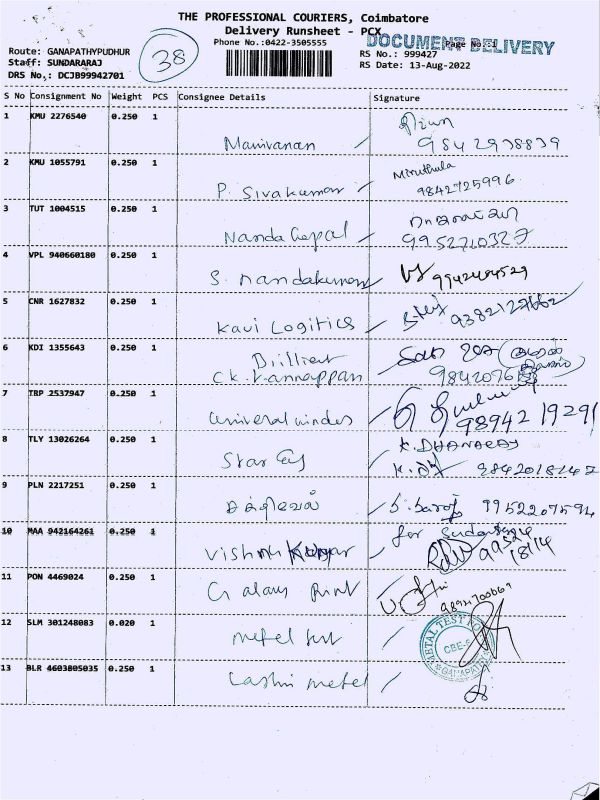 THE PROFESSIONAL COURIERS, Coimbatore
Delivery Runsheet - PCX
Phone No.:0422-3505555
DOCUMENT DELIVERY
Page No:1
Route: GANAPATHYPUDHUR
Staff: SUNDARARAJ
DRS No,: DCJB99942701
38
RS No.: 999427
RS Date: 13-Aug-2022
S No Consignment No Weight PCS Consignee Details Signature
1 KMU 2276540 0.250 1 Manivanan
9842938839
2 KMU 1055791 0.250 1 P. Sivakumar Miruthula
9842725996
3 TUT 1004515 0.250 1 Nanda Gopal
9952710327
4 VPL 940660180 0.250 1 S. Nandakumar 9942484529
5 CNR 1627832 0.250 1 Kavi Logitics 9382127662
6 KDI 1355643 0.250 1 Brillient
C.K. Kannappan
7 TRP 2537947 0.250 1 Universal
98942 19291
8 TLY 13026264 0.250 1 Star K. DHANARAJ
9842018147
9 PLN 2217251 0.250 1 9952207594
10 MAA 942164261 0.250 1 Vishnu Kumar for
11 PON 4469024 0.250 1 Print
12 SLM 301248083 0.020 1 Metel test
METAL TEST
CBE-6
GANAPATHY
13 BLR 4603805035 0.250 1 Lashmi metel